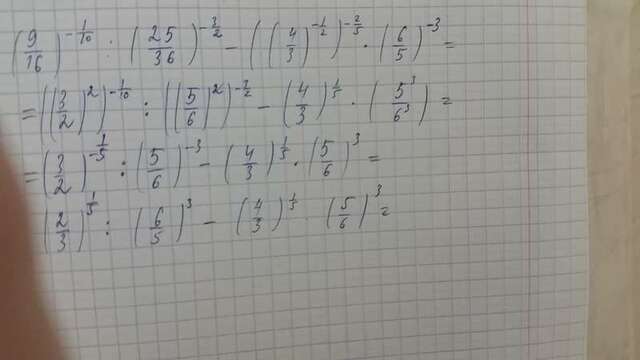 (9/16)^(-1/10) : (25/36)^(-3/2) - ((4/3)^(-1/2))^(-2/5) · (6/5)^(-3) =
= ((3/2)^2)^(-1/10) : ((5/6)^2)^(-3/2) - (4/3)^(1/5) · (5/6)^3 =
= (3/2)^(-1/5) : (5/6)^(-3) - (4/3)^(1/5) · (5/6)^3 =
(2/3)^(1/5) : (6/5)^3 - (4/3)^(1/5) (5/6)^3 =